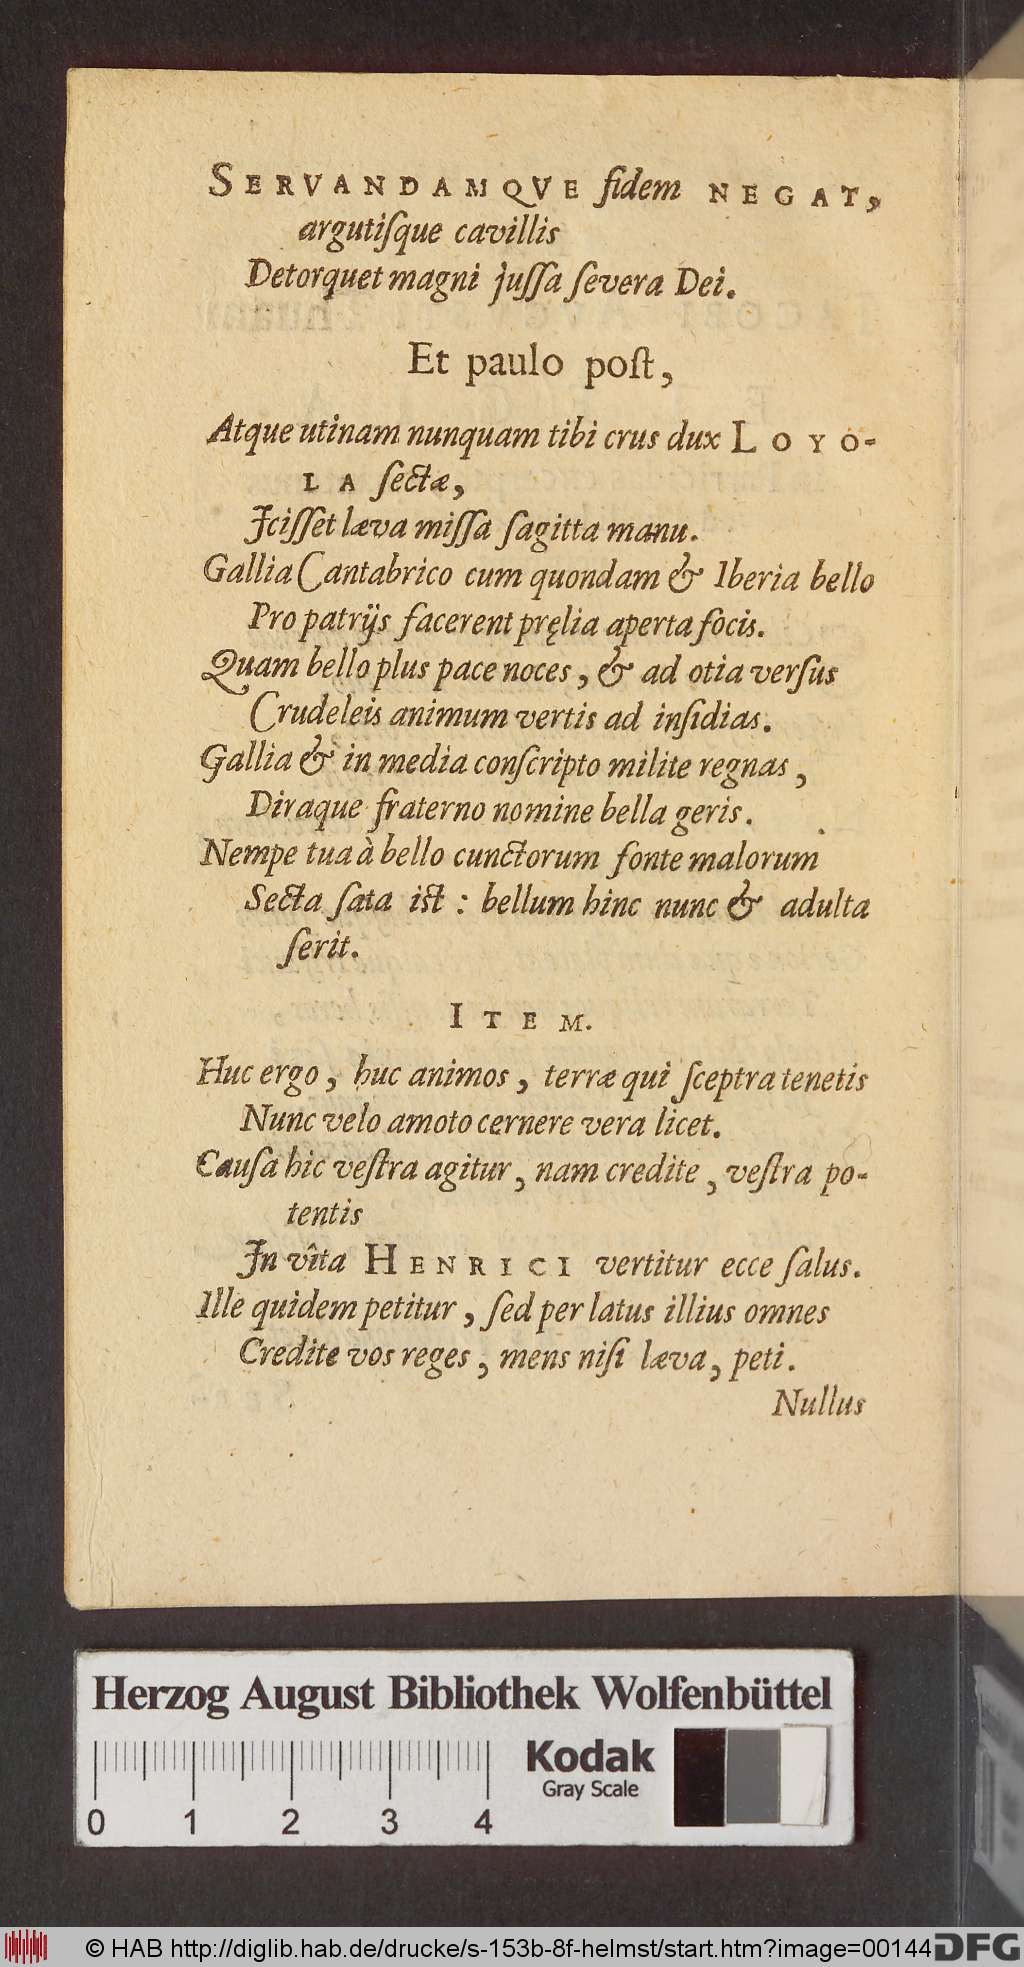 SERVANDAMQVE fidem NEGAT,
argutiſque cavillis
Detorquet magni juſſa ſevera Dei.
Et paulo poſt,
Atque utinam nunquam tibi crus dux LOYO-
LA ſectæ,
Jciſſet læva miſſa ſagitta manu.
Gallia Cantabrico cum quondam & Iberia bello
Pro patrijs facerent pręlia aperta focis.
Quam bello plus pace noces, & ad otia verſus
Crudeleis animum vertis ad inſidias.
Gallia & in media conſcripto milite regnas,
Diraque fraterno nomine bella geris.
Nempe tua à bello cunctorum fonte malorum
Secta ſata ist: bellum hinc nunc & adulta
ſerit.
ITEM.
Huc ergo, huc animos, terræ qui ſceptra tenetis
Nunc velo amoto cernere vera licet.
Cauſa hic veſtra agitur, nam credite, veſtra po-
tentis
Jn vîta HENRICI vertitur ecce ſalus.
Ille quidem petitur, ſed per latus illius omnes
Credite vos reges, mens niſi læva, peti.
Nullus
Herzog August Bibliothek Wolfenbüttel
Kodak
Gray Scale
0 1 2 3 4
© HAB http://diglib.hab.de/drucke/s-153b-8f-helmst/start.htm?image=00144
DFG